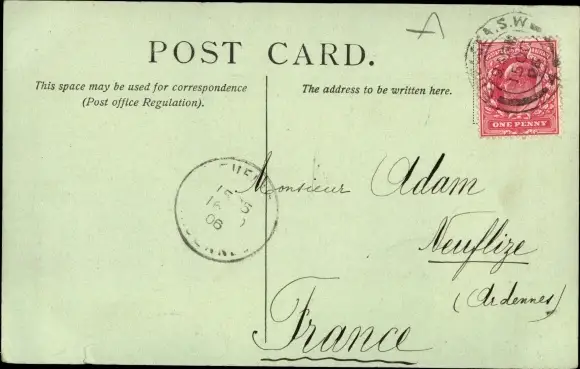 POST CARD.
This space may be used for correspondence
(Post office Regulation).
The address to be written here.
ONE PENNY
Monsieur Adam
Neuflize
(Ardennes)
France
06